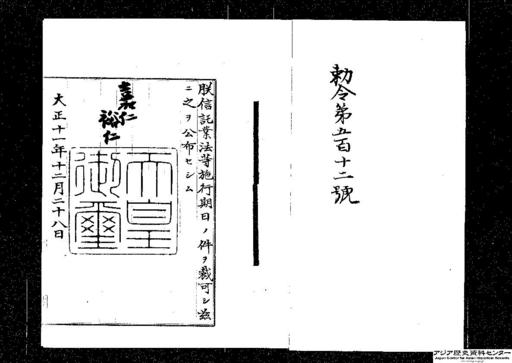 勅令第五百十二號
朕信託業法等施行期日ノ件ヲ裁可シ茲
ニ之ヲ公布セシム
嘉仁
裕仁
天皇
御璽
大正十一年十二月二十八日
アジア歴史資料センター
Japan Center for Asian Historical Records